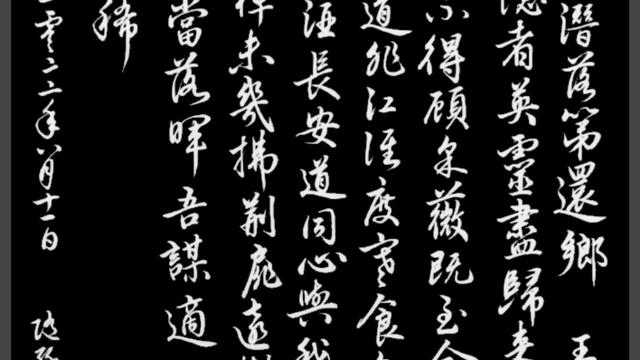 潛落第還鄉 王
隱者英靈盡歸來
不得顧采薇既至金
道非江淮度寒食
酒長安道同心與我
棹未幾拂荊扉遠
當落暉吾謀適
稀
二零二二年八月十一日